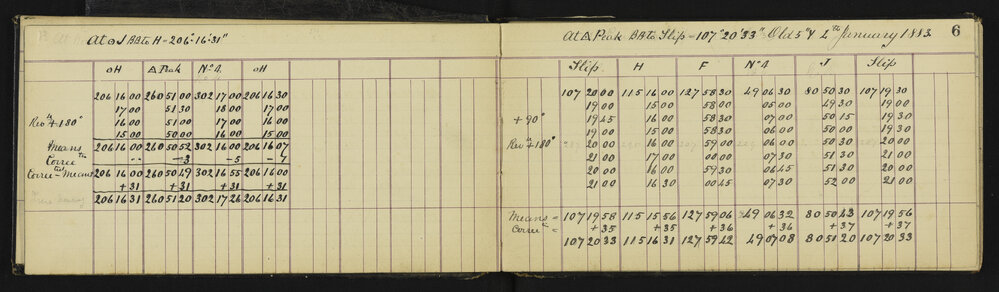 At ⊙ J BB to H = 206° 16' 31"
oH △ Peak No 4 oH
206 16 00 260 51 00 302 17 00 206 16 30
17 00 51 30 18 00 17 00
Revd + 180° 16 00 51 00 17 00 16 00
15 00 50 00 16 00 15 00
Means 206 16 00 260 50 52 302 16 00 206 16 07
Correctn -- -3 -5 -7
Correctd Means 206 16 00 260 50 49 302 16 55 206 16 00
+31 +31 +31 +31
True bearing 206 16 31 260 51 20 302 17 26 206 16 31
At △ Peak BB to Slip = 107° 20' 33" Old 5" V 4th January 1883. 6
Slip H F No 4 J Slip
107 20 00 115 16 00 127 58 30 49 06 30 80 50 30 107 19 30
19 00 15 00 58 00 05 00 49 30 19 00
+ 90° 19 45 16 00 58 30 07 00 50 15 19 30
19 00 15 00 58 30 06 00 50 00 19 30
Revd + 180° 20 00 16 00 59 00 06 00 50 30 20 00
21 00 17 00 00 00 07 30 51 30 21 00
20 00 16 00 59 30 06 45 51 30 20 00
21 00 16 30 00 45 07 30 52 00 21 00
Means = 107 19 58 115 15 56 127 59 06 49 06 32 80 50 43 107 19 56
Correctn = +35 +35 +36 +36 +37 +37
107 20 33 115 16 31 127 59 42 49 07 08 80 51 20 107 20 33